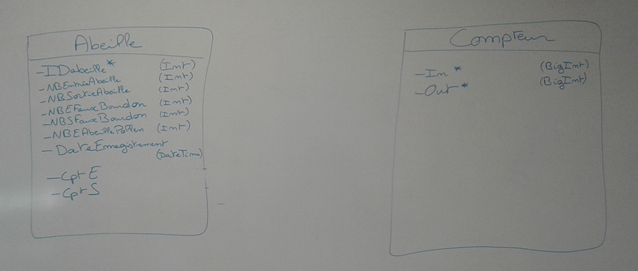 Abeille
- IDabeille * (Int)
- NBEntréeAbeille (Int)
- NBSortieAbeille (Int)
- NBEFauxBourdon (Int)
- NBSFauxBourdon (Int)
- NBEAbeillePollen (Int)
- DateEnregistrement
(DateTime)
- Cpt E
- Cpt S
Compteur
- In * (BigInt)
- Out * (BigInt)